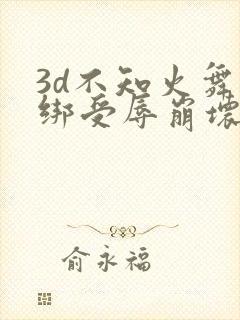 3d不知火舞
绑受辱崩坏
俞永福